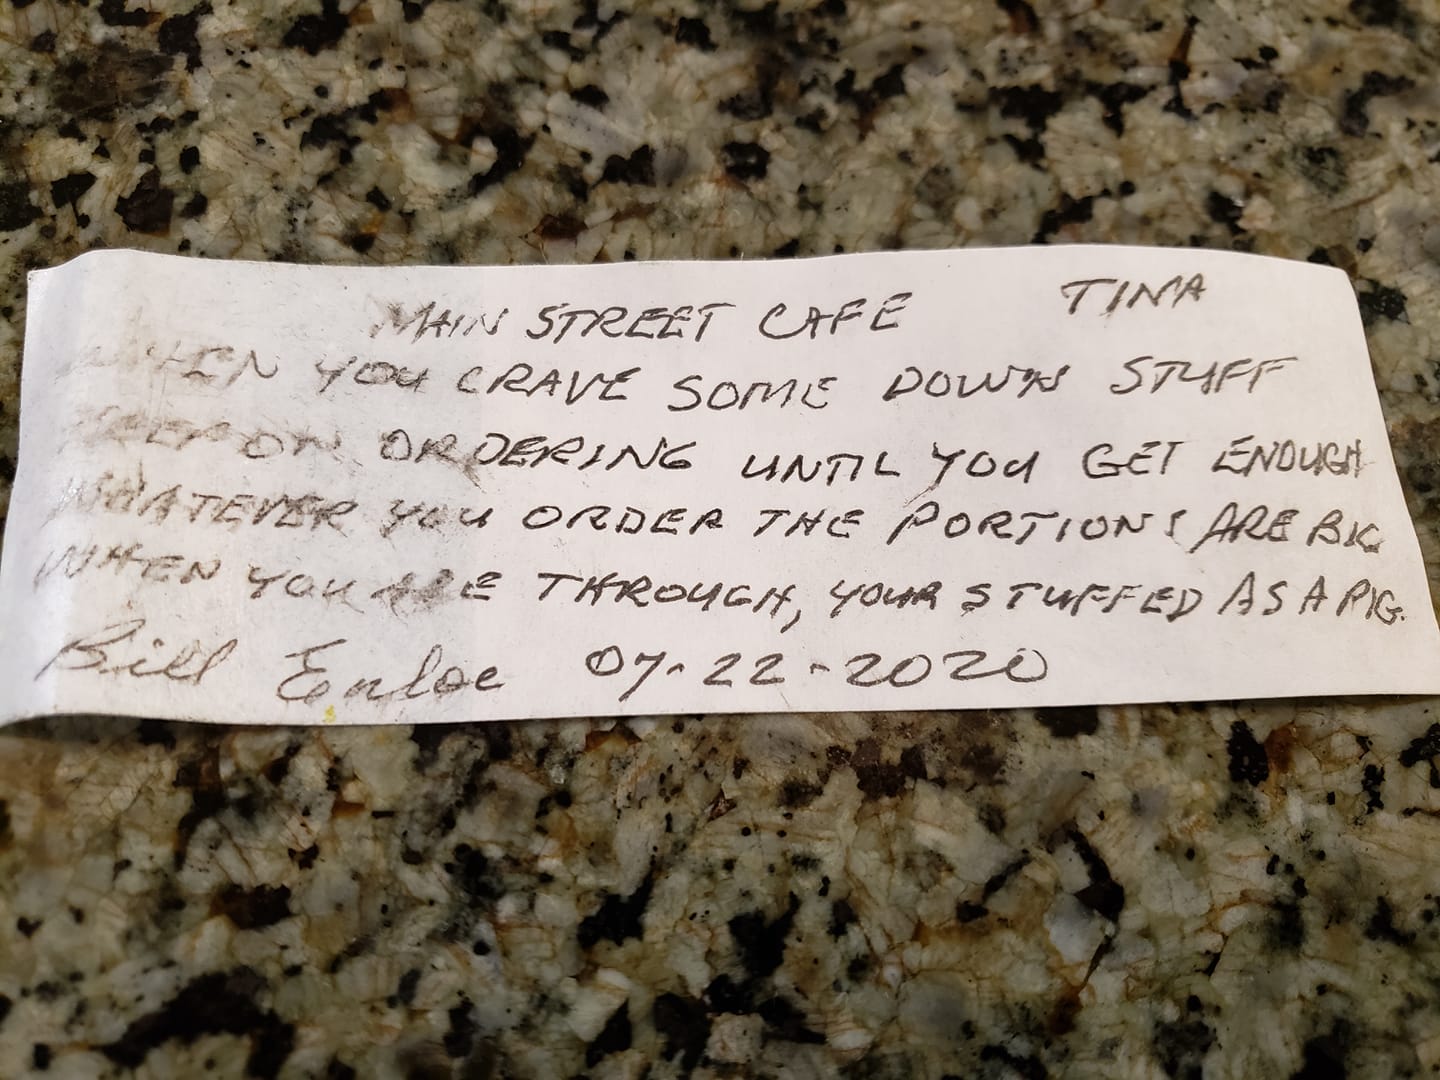 MAIN STREET CAFE TINA
WHEN YOU CRAVE SOME DOWN STUFF
KEEP ON ORDERING UNTIL YOU GET ENOUGH
WHATEVER YOU ORDER THE PORTIONS ARE BIG
WHEN YOU ARE THROUGH, YOUR STUFFED AS A PIG.
Bill Enloe 07-22-2020